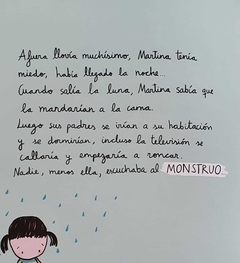 Afuera llovía muchísimo, Martina tenía
miedo, había llegado la noche...
Cuando salía la luna, Martina sabía que
la mandarían a la cama.
Luego sus padres se irían a su habitación
y se dormirían, incluso la televisión se
callaría y empezaría a roncar.
Nadie, menos ella, escuchaba al MONSTRUO.